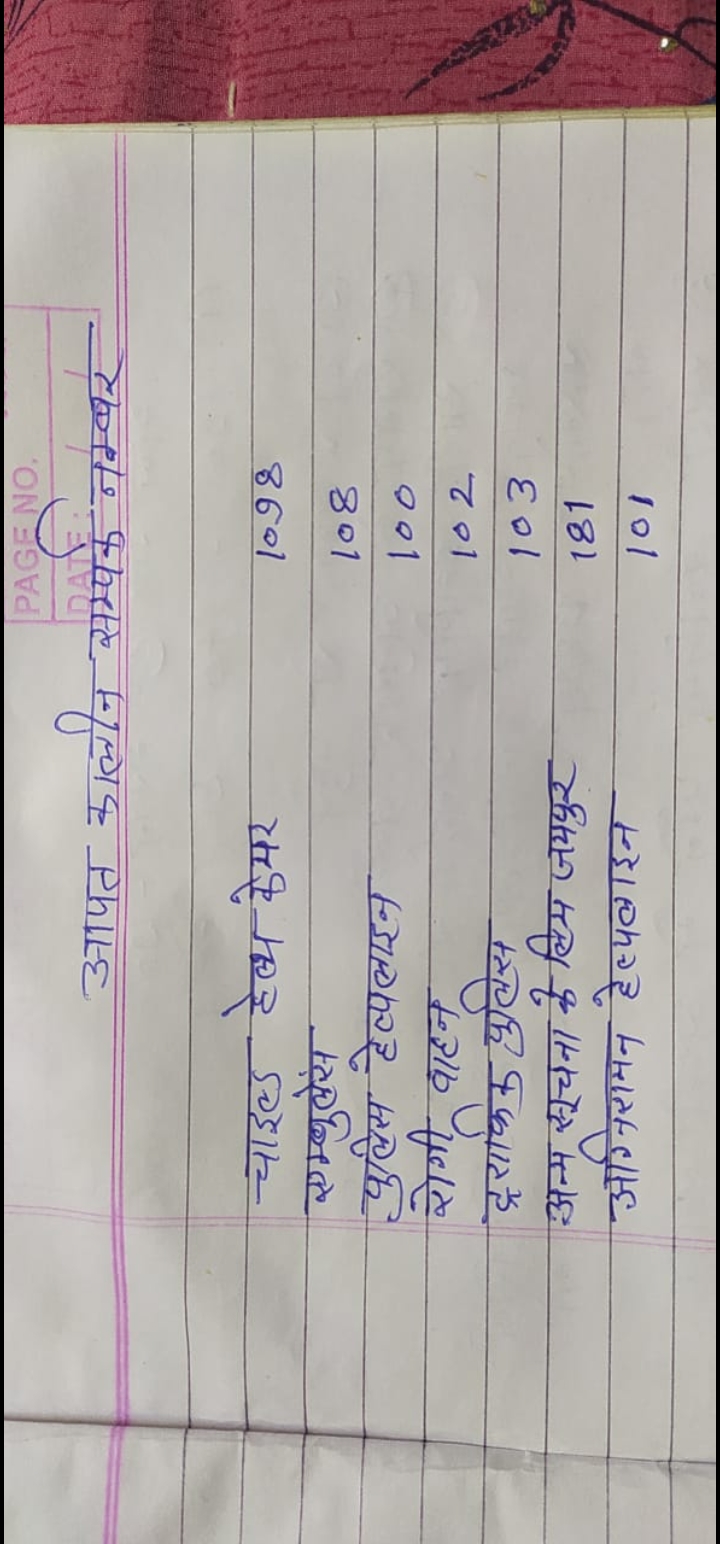 PAGE NO.
DATE:
आपत कालीन सम्पर्क नम्बर
चाइल्ड हेल्प केयर 1098
एम्बुलेंस 108
पुलिस हेल्पलाइन 100
रोगी वाहन 102
ट्राफिक पुलिस 103
अन्य सूचना के लिए जयपुर 181
अग्निशमन हेल्पलाइन 101